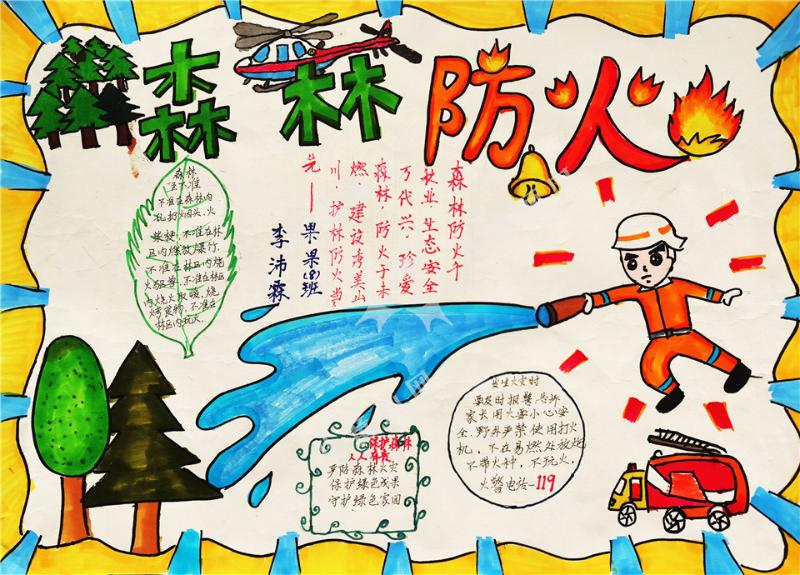 森林防火
森林
五不准
不准在森林内
乱扔烟头、火
柴梗,不准在林
区内燃放爆竹,
不准在林区内烧
火驱兽,不准在林区
内烧火取暖,烧
烤食物,不准在
林区内玩火。
森林防火千
秋业 生态安全
万代兴·珍爱
森林·防火于未
燃·建设秀美山
川·护林防火当
先一
果果(8)班
李沛霖
保护森林
人人有责
严防森林火灾
保护绿色成果
守护绿色家园
发生火灾时
要及时报警告诉
家长用火要小心安
全.野外严禁使用打火
机,不在易燃处放炮
不带火种,不玩火,
火警电话-119